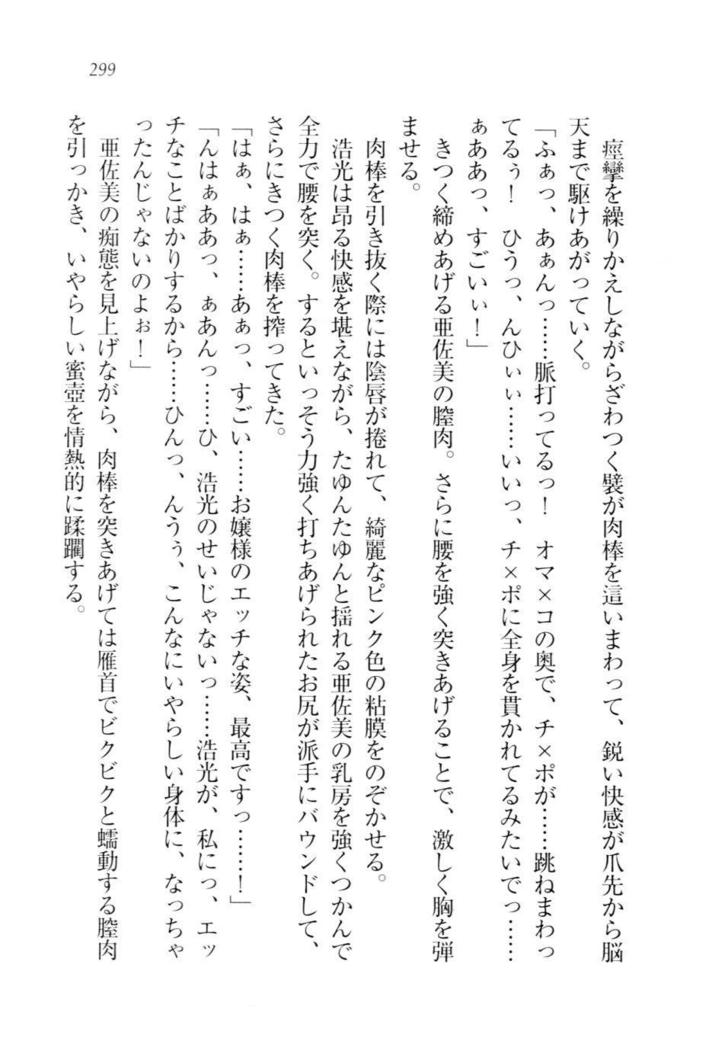 299
痙攣を繰りかえしながらざわつく襞が肉棒を這いまわって、鋭い快感が爪先から脳
天まで駆けあがっていく。
「ふぁっ、あぁんっ……脈打ってるっ！　オマ×コの奥で、チ×ポが……跳ねまわっ
てるぅ！　ひうっ、んひぃぃ……いいっ、チ×ポに全身を貫かれてるみたいでっ……
ぁああっ、すごいぃ！」
きつく締めあげる亜佐美の膣肉。さらに腰を強く突きあげることで、激しく胸を弾
ませる。
肉棒を引き抜く際には陰唇が捲れて、綺麗なピンク色の粘膜をのぞかせる。
浩光は昂る快感を堪えながら、たゆんたゆんと揺れる亜佐美の乳房を強くつかんで
全力で腰を突く。するといっそう力強く打ちあげられたお尻が派手にバウンドして、
さらにきつく肉棒を搾ってきた。
「はぁ、はぁ……あぁっ、すごい……お嬢様のエッチな姿、最高ですっ……！」
「んはぁああっ、ぁあんっ……ひ、浩光のせいじゃないっ……浩光が、私にっ、エッ
チなことばかりするから……ひんっ、んうぅ、こんなにいやらしい身体に、なっちゃ
ったんじゃないのよぉ！」
亜佐美の痴態を見上げながら、肉棒を突きあげては雁首でビクビクと蠕動する膣肉
を引っかき、いやらしい蜜壺を情熱的に蹂躙する。